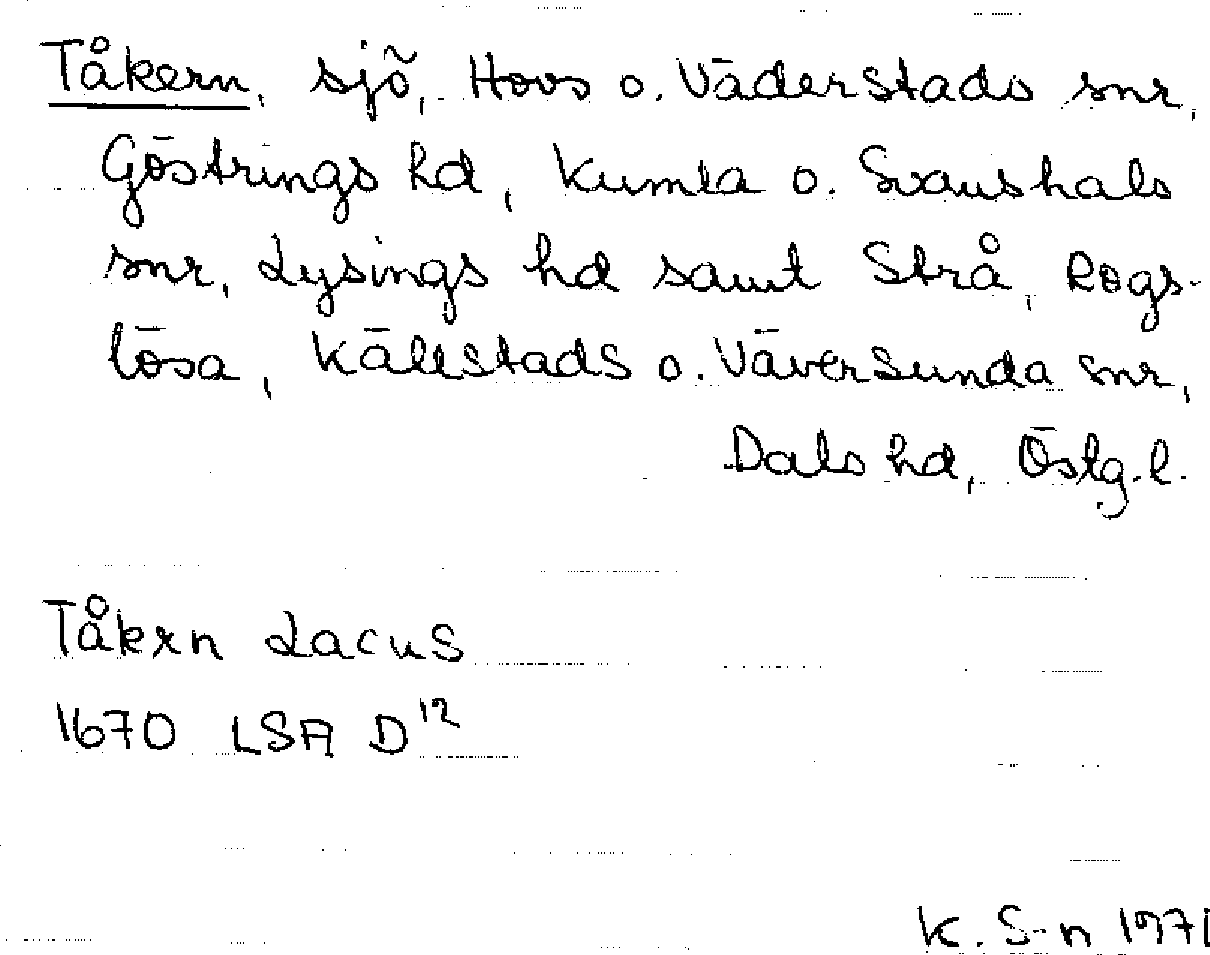 Tåkern, sjö, Hovs o. Väderstads snr,
Göstrings hd, Kumla o. Svanshals
snr, Lysings hd samt Strå, Rogs-
lösa, Källstads o. Väversunda snr,
Dals hd, Östg. l.
Tåkern Lacus
1670 LSA D¹²
K. S-n 1971